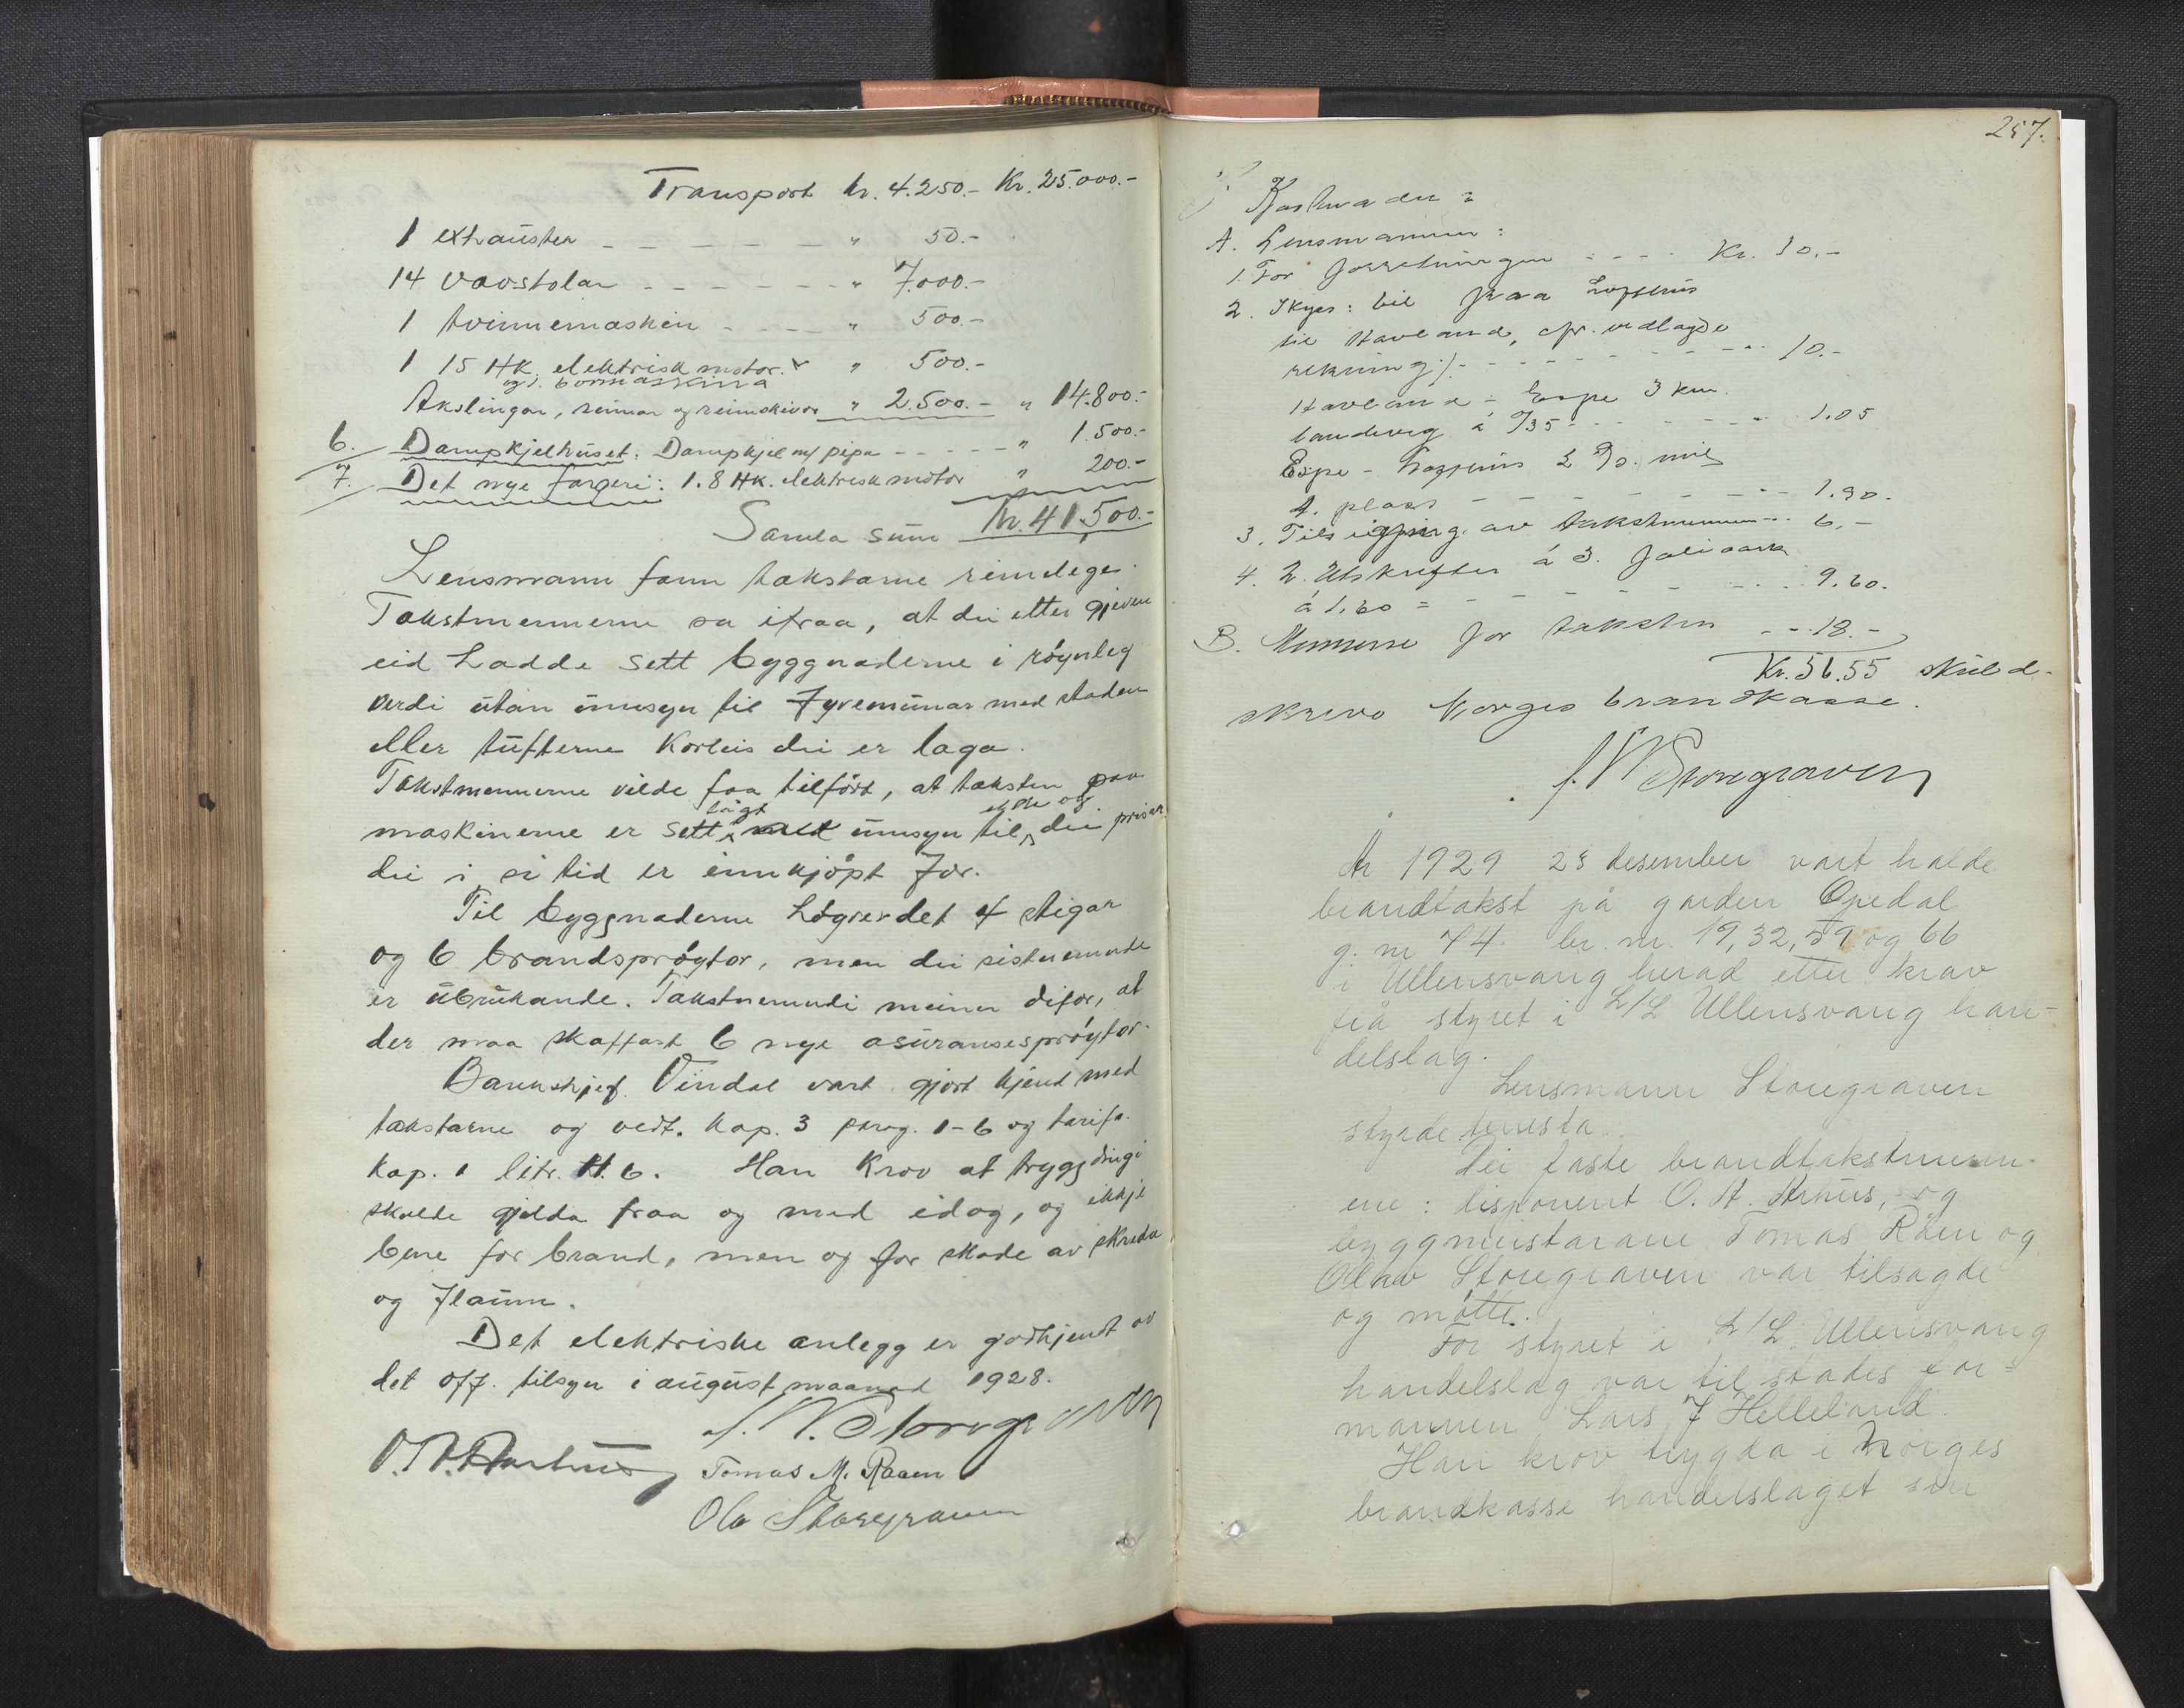 Transport kr. 4.250.- Kr. 25.000.-
1 exhauster - - - - - - " 50.-
14 vævstolar - - - - - - " 7.000.-
1 tvinnemaskin - - - - " 500.-
1 15 HK. elektrisk motor. " 500.-
og 1. bormaskina
Akslingar, reimar og reimskivor " 2.500.- " 14.800.-
6. Dampkjelhuset: Dampkjel m/ pipa - - - - - " 1.500.-
7. Det nye fargeri: 1.8 HK. elektrisk motor " 200.-
Samla sum Kr. 41.500.-
Lensmann fann takstarne rimelege.
Takstmennerne sa ifraa, at dei etter gjeven
eid hadde sett byggnaderne i røynleg
verdi utan umsyn til fyremunar med staden
eller tufterne korleis dei er laga.
Takstmennerne vilde faa tilført, at taksten paa
maskinerne er sett lågt umsyn til ogso dei prisar
dei i si tid er innkjøpt for.
Til byggnaderne høyrer det 4 stigar
og 6 brandsprøytor, men dei sistnemnde
er ubrukande. Takstnemndi meiner difor, at
der maa skaffast 6 nye asuransesprøytor.
Bankskjef Vindal vart gjort kjend med
takstarne og vedt. kap. 3 parag. 1-6 og tarifs.
kap. 1 litr. H. 6. Han krov at tryggdingi
skulde gjelda fraa og med idag, og ikkje
bere for brand, men og for skade av skreda
og flaum.
Det elektriske anlegg er godkjendt av
det off. tilsyn i august maaned 1928.
Storegraven
Tomas M. Raaen
Ola Storegraven
257.
Kostnader:
A. Lensmannen:
1. For forretningen - - - - Kr. 10.-
2. Skyss: bil fraa Lofthus
til Havland, cfr. vedlagde
rekning /. - - - - - - - - 10.-
Havland - Espe 3 km.
landeveg á /35 - - - - - - - 1.05
Espe - Lofthus mil
1. plass - - - - - - - - - 1.90.
3. Tilsigjing av takstmennene - - 6.-
4. 2. Utskrifter á 3. folioark
á 1.60 = - - - - - - - 9.60.
B. Mennerne for taksten - - - 18.-
Kr. 56.55 skuld-
skrive Norges brandkasse.
Storegraven
År 1929 28 desember vart halde
brandtakst på garden Opedal
g. nr 74. br. nr. 19, 32, 59 og 66
i Ullensvang herad etter krav
frå styret i L/L Ullensvang han-
delslag.
Lensmann Storegraven
styrde tenesta.
Dei faste brandtakstmenn-
ene: disponent O. A. Århus, og
byggmeistarane Tomas Råen og
Olav Storegraven var tilsagde
og møtte.
For styret i L/L Ullensvang
handelslag var til stades for-
mannen Lars J Helleland.
Han krov trygda i Norges
brandkasse handelslaget sin